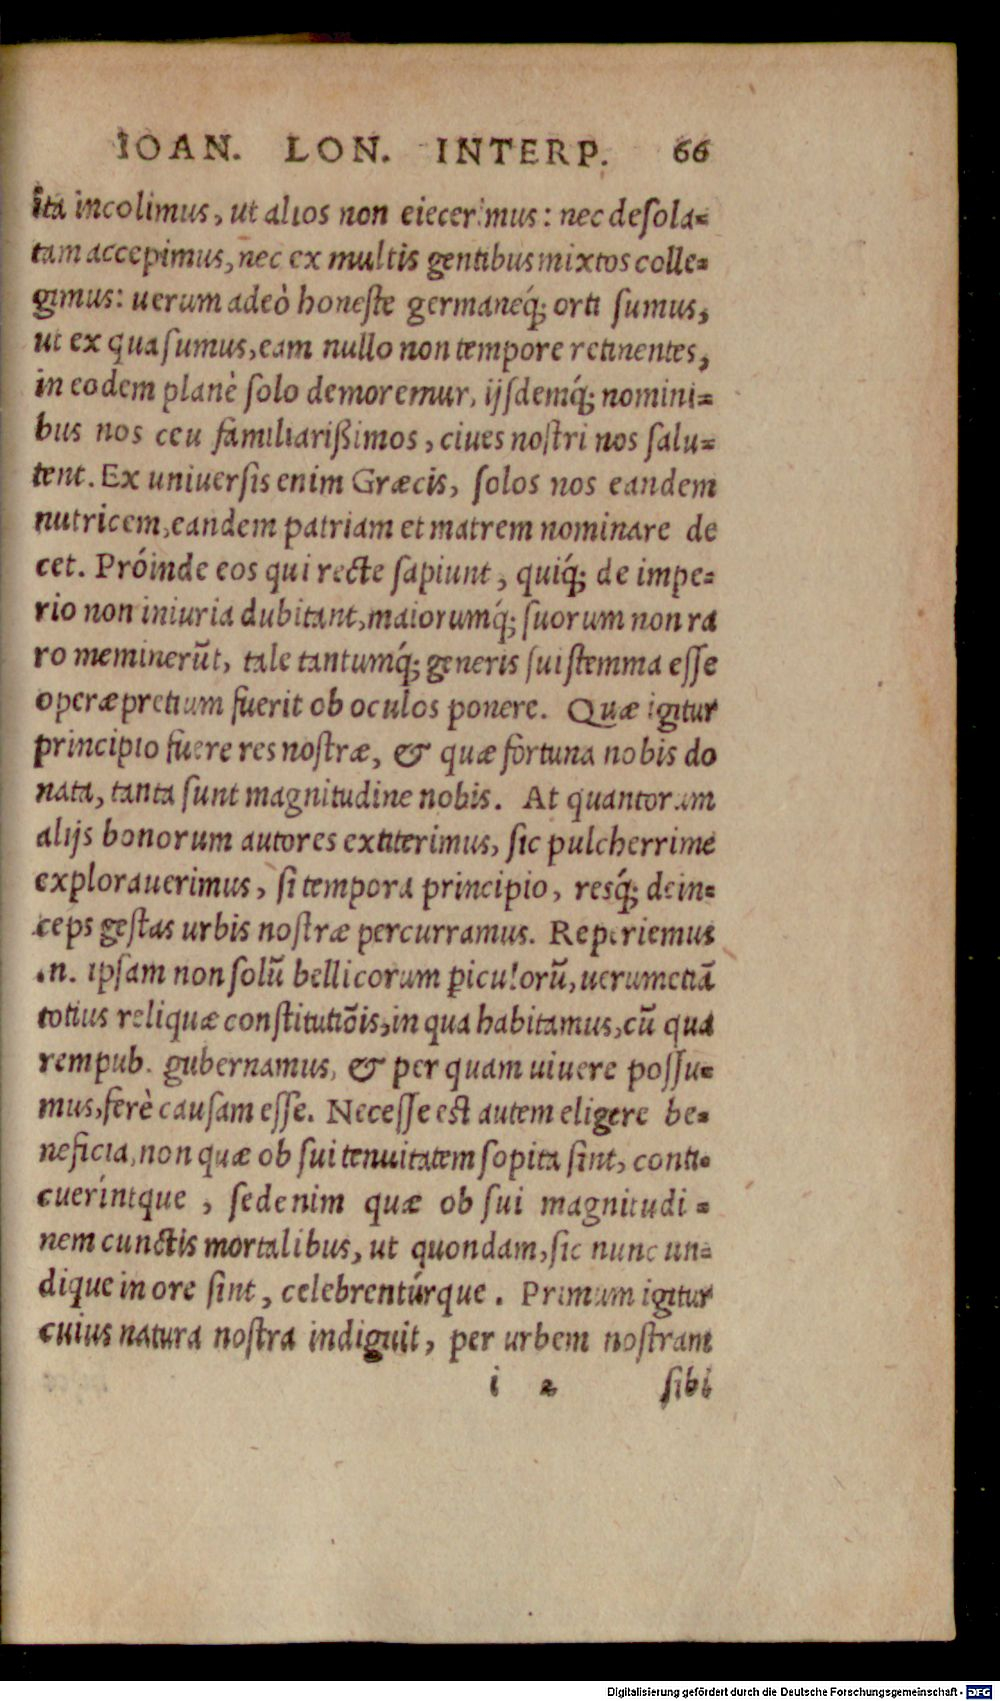 IOAN. LON. INTERP. 66
ita incolimus, ut alios non eiecerimus: nec desola=
tam accepimus, nec ex multis gentibus mixtos colle=
gimus: uerum adeò honeste germaneq́; orti sumus,
ut ex qua sumus, eam nullo non tempore retinentes,
in eodem planè solo demoremur, ijsdemq́; nomini=
bus nos ceu familiarißimos, ciues nostri nos salu=
tent. Ex uniuersis enim Græcis, solos nos eandem
nutricem, eandem patriam et matrem nominare de
cet. Próinde eos qui recte sapiunt, quiq́; de impe=
rio non iniuria dubitant, maiorumq́; suorum non ra
ro meminerũt, tale tantumq́; generis sui stemma esse
operæpretium fuerit ob oculos ponere. Quæ igitur
principio fuere res nostræ, & quæ fortuna nobis do
nata, tanta sunt magnitudine nobis. At quantorum
alijs bonorum autores extiterimus, sic pulcherrime
explorauerimus, si tempora principio, resq́; dein=
ceps gestas urbis nostræ percurramus. Reperiemus
.n. ipsam non solũ bellicorum ꝑiculorũ, uerumetiã
totius reliquæ constitutiõis, in qua habitamus, cũ qua
rempub. gubernamus, & per quam uiuere possu=
mus, ferè causam esse. Necesse est autem eligere be=
neficia, non quæ ob sui tenuitatem sopita sint, conti=
cueríntque, sedenim quæ ob sui magnitudi=
nem cunctis mortalibus, ut quondam, sic nunc un=
dique in ore sint, celebrentúrque. Primum igitur
cuius natura nostra indiguit, per urbem nostram
i 2 sibi
Digitalisierung gefördert durch die Deutsche Forschungsgemeinschaft - DFG